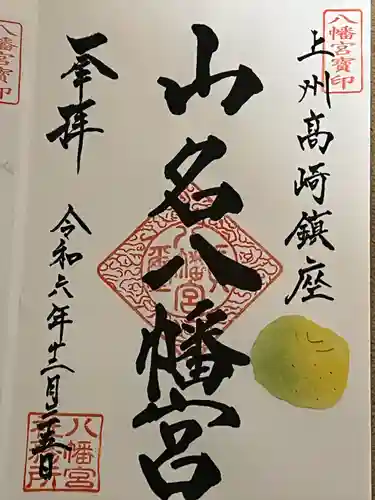 八幡宮寳印
上州高崎鎮座
山名八幡宮
奉拝
令和六年十二月二五日
八幡宮寳印
八幡宮